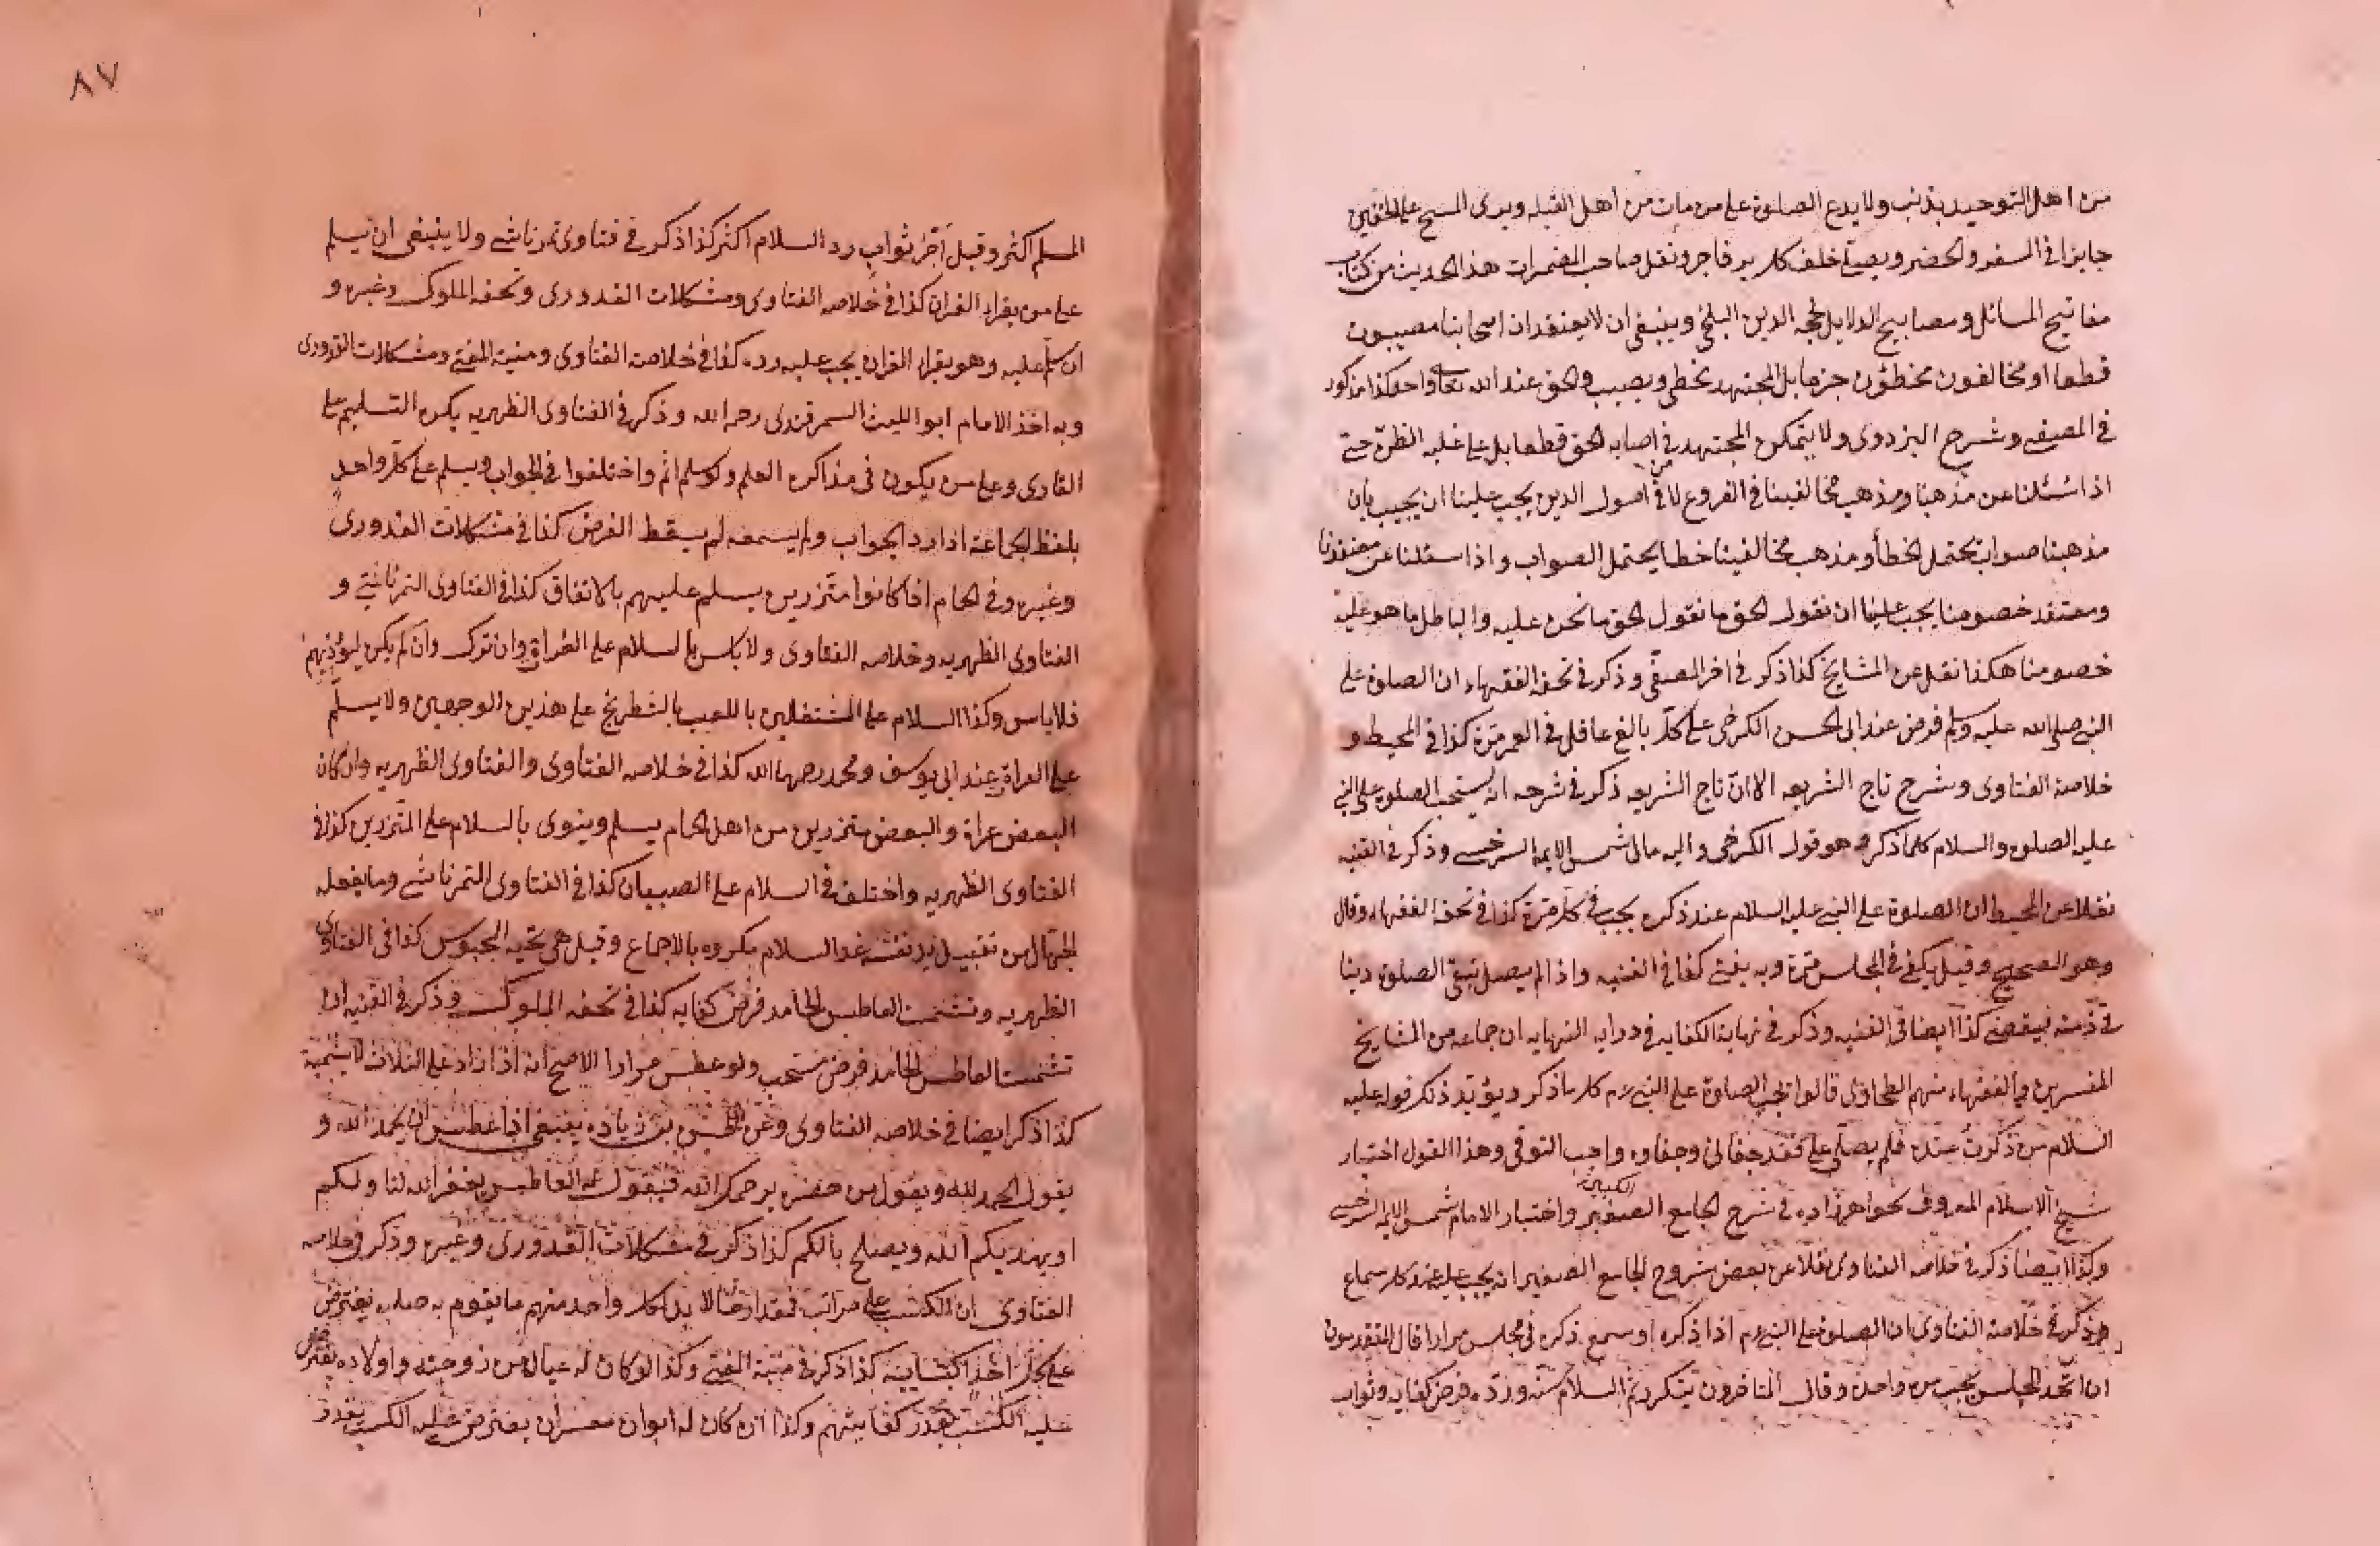 من اهل التوحيد بذنب ولا يدع الصلوة على من مات من اهل القبلة ويرى المسح على الخفين
جايزا في السفر والحضر ويصلي خلف كل بر وفاجر ونقل صاحب المضمرات هذا الحديث من كتاب
مفاتيح المسائل ومصابيح الدلايل لحجه الدين البلخي وينبغي ان لا يعتقد ان اصحابنا مصيبون
قطعا او مخالفون مخطؤن جزما بل المجتهد يخطي ويصيب والحق عند الله تعالى واحد كذا مذكور
في المصفى وشرح البزدوى ولا يتمكن المجتهد في اصابه الحق قطعا بل على غلبه الظن حتى
اذا سئلنا عن مذهبنا ومذهب مخالفينا في الفروع لا في اصول الدين يجب علينا ان يجيب بان
مذهبنا صواب يحتمل الخطأ ومذهب مخالفينا خطا يحتمل الصواب واذا سئلنا عن معتقدنا
ومعتقد خصومنا يجب علينا ان نقول الحق ما نقول الحق ما نحن عليه والباطل ما هو عليه
خصومنا هكذا نقل عن المشايخ كذا ذكر في اخر المصفى وذكر في تحفة الفقهاء ان الصلوة على
النبي صلى الله عليه وسلم فرض عند ابى الحسن الكرخى على كل بالغ عاقل في العمر مرة كذا في المحيط و
خلاصة الفتاوى وشرح تاج الشريعه الا ان تاج الشريعه ذكر في شرحه انه يستحب الصلوة على النبي
عليه الصلوة والسلام كلما ذكر وهو قول الكرخى واليه مال شمس الايمة السرخسي وذكر في القنيه
نقلا عن المحيط ان الصلوة على النبي عليه السلام عند ذكره يجب في كل مرة كذا في تحفة الفقهاء وقال
وهو الصحيح وقيل يكفي في المجلس مرة وبه يفتى كذا في القنيه واذا لم يصل تبقى الصلوة دينا
في ذمته فيقضي كذا ايضا في القنيه وذكر في نهاية الكفايه في درايه النهايه ان جماعه من المشايخ
المفسرين والفقهاء منهم الطحاوى قالوا تجب الصلوة على النبي م كلما ذكر ويؤيد ذلك قوله عليه
السلام من ذكرت عنده فلم يصل علي فقد جفاني وجفاوه واجب التوقى وهذا القول اختيار
شيخ الاسلام المعروف بخواهرزاده في شرح الجامع الصغير الكبير واختيار الامام شمس الايمة السرخسي
وكذا ايضا ذكر في خلاصه الفتاوى نقلا عن بعض شروح الجامع الصغير انه يجب عليه عند كل سماع
وذكر في خلاصه الفتاوى ان الصلوة على النبي م اذا ذكره او سمع ذكره في مجلس مرارا قال المتقدمون
ان اتحد المجلس يجب مرة واحدة وقال المتاخرون يتكرر ثم السلام سنة ورده فرض كفاية وثواب
٨٧
المسلم اكثر وقيل اجر ثواب رد السلام اكثر كذا ذكر في فتاوى تمرتاشي ولا ينبغي ان يسلم
على من يقراء القران كذا في خلاصه الفتاوى ومشكلات القدورى وتحفه الملوك وغيره و
ان سلم عليه وهو يقراء القران يجب عليه رده كذا في خلاصة الفتاوى ومنية المفتي ومشكلات القدورى
وبه اخذ الامام ابو الليث السمرقندى رحمه الله وذكر في الفتاوى الظهيريه يكره التسليم على
القارى وعلى من يكون في مذاكره العلم ولو سلم اثم واختلفوا في الجواب ويسلم على كل واحد
بلفظ الجماعة اذا رد الجواب ولم يسمعه لم يسقط الفرض كذا في مشكلات القدورى
وغيره وفي الحمام اذا كانوا متزرين يسلم عليهم بالاتفاق كذا في الفتاوى التمرتاشي و
الفتاوى الظهيريه وخلاصه الفتاوى ولا بأس بالسلام على العراة وان ترك وان لم يكن ليؤذيهم
فلا باس وكذا السلام على المشتغلين باللعب بالشطرنج على هذين الوجهين ولا يسلم
على العراة عند ابي يوسف ومحمد رحمهما الله كذا في خلاصه الفتاوى والفتاوى الظهيريه وان كان
البعض عراة والبعض متزرين من اهل الحمام يسلم وينوى بالسلام على المتزرين كذا في
الفتاوى الظهيريه واختلف في السلام على الصبيان كذا في الفتاوى التمرتاشي وما يفعله
الجهال من تقبيل يد نفسه عند السلام مكروه بالاجماع وقيل هى تحيه المجوس كذا في الفتاوى
الظهيريه وتشميت العاطس الحامد فرض كفايه كذا في تحفه الملوك وذكر في القنيه ان
تشميت العاطس الحامد فرض مستحب ولو عطس مرارا الاصح انه اذا زاد على الثلاث لا يشمته
كذا ذكر ايضا في خلاصه الفتاوى وعن الحسن بن زياد ينبغي اذا عطس ان يحمد الله و
يقول الحمد لله ويقول من حضره يرحمك الله فيقول له العاطس يغفر الله لنا ولكم
او يهديكم الله ويصلح بالكم كذا ذكر في مشكلات القدورى وغيره وذكر في خلاصه
الفتاوى ان الكسب على مراتب فمقدار ما لا بد لكل واحد منهم ما يقوم به صلبه يفترض
على كل احد اكتسابه كذا ذكر في منية المفتي وكذا لو كان له عيال من زوجته واولاده يفترض
عليه الكسب بقدر كفايتهم وكذا ان كان له ابوان معسران يفترض عليه الكسب بقدر